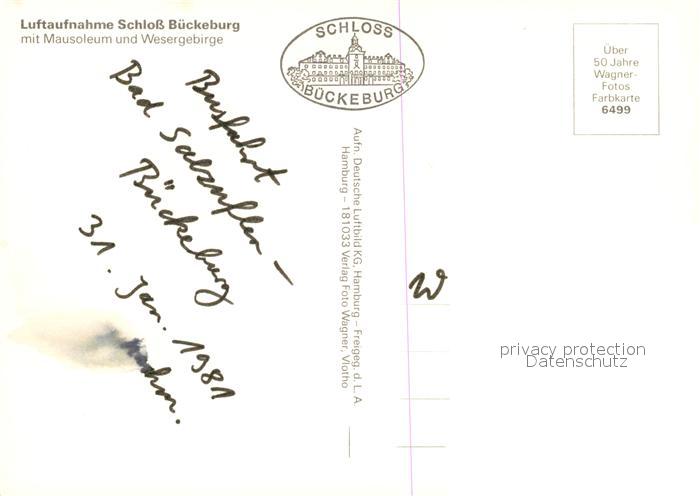 Luftaufnahme Schloß Bückeburg
mit Mausoleum und Wesergebirge
SCHLOSS
BÜCKEBURG
Über
50 Jahre
Wagner-
Fotos
Farbkarte
6499
Busfahrt
Bad Salzuflen –
Bückeburg
31. Jan. 1981
Aufn. Deutsche Luftbild KG, Hamburg – Freigeg. d. L. A.
Hamburg – 181033 Verlag Foto Wagner, Vlotho
W
privacy protection
Datenschutz